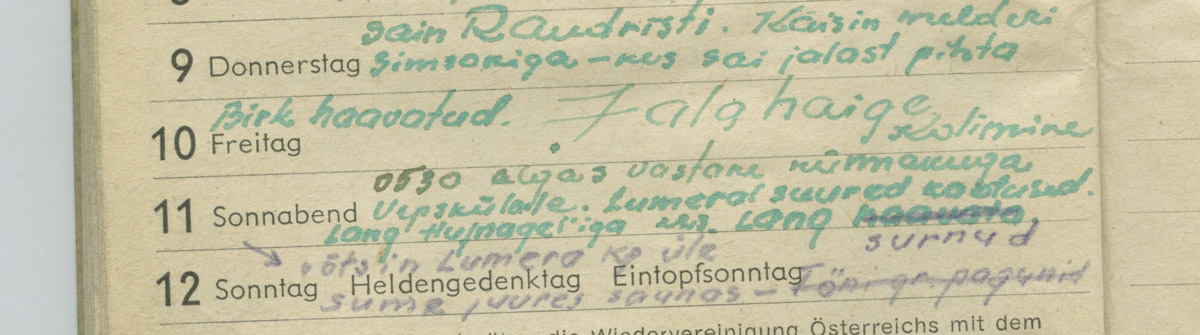 sain Raudristi. Käisin mulderi
9 Donnerstag Simsoniga – kus sai jalast pihta
Birk haavatud. Jalg haige
10 Freitag Kolimine
0530 algas vastane rünnakuga
11 Sonnabend Vepskülale. Lumeral suured kaotused.
Lang Hufnagel'iga Lang haavata,
surnud
võtsin Lumera Ko üle
12 Sonntag Heldengedenktag Eintopfsonntag
juures saunas –
die Wiedervereinigung Österreichs mit dem